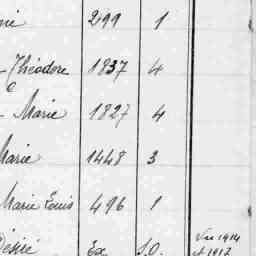 299 1
Théodore 1837 4
Marie 1827 4
Marie 1448 3
Marie Louis 496 1
Désiré Ex S.O. Vu 1914
et 1917